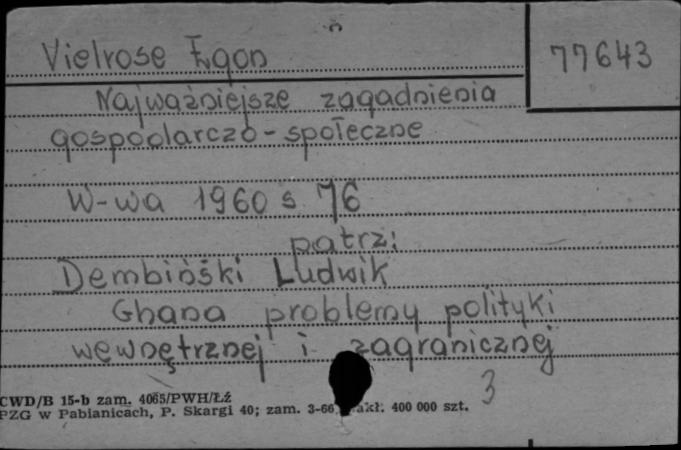 Vielrose Egon
77643
Najważniejsze zagadnienia
gospodarczo-społeczne
W-wa 1960 s 76
patrz:
Dembiński Ludwik
Ghana problemy polityki
wewnętrznej i zagranicznej
3
CWD/B 15-b zam. 4065/PWH/Łź
PZG w Pabianicach, P. Skargi 40; zam. 3-66 nakł. 400 000 szt.